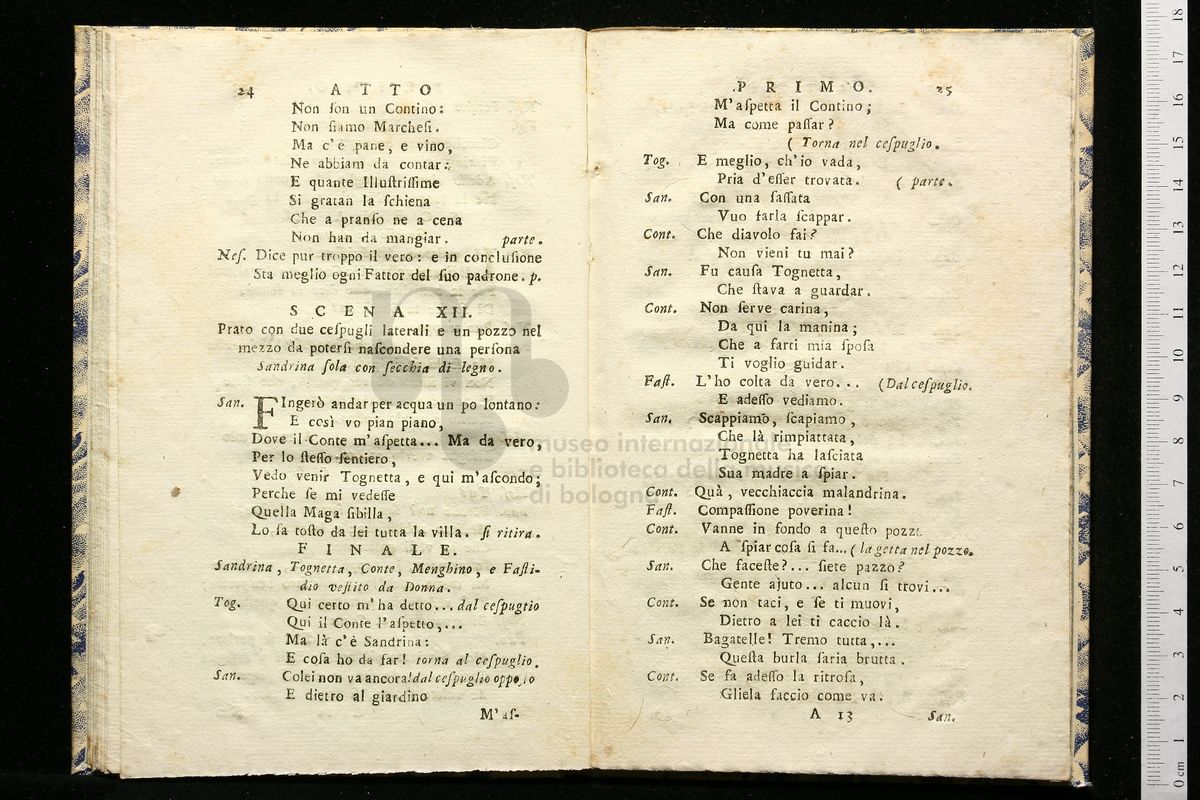 24 ATTO
Non ſon un Contino:
Non ſiamo Marcheſi.
Ma c'è pane, e vino,
Ne abbiam da contar:
E quante Illuſtriſſime
Si gratan la ſchiena
Che a pranſo ne a cena
Non han da mangiar. parte.
Neſ. Dice pur troppo il vero: e in concluſione
Sta meglio ogni Fattor del ſuo padrone. p.
SCENA XII.
Prato con due ceſpugli laterali e un pozzo nel
mezzo da poterſi naſcondere una perſona
Sandrina ſola con ſecchia di legno.
San. FIngerò andar per acqua un po lontano:
E così vo pian piano,
Dove il Conte m'aſpetta... Ma da vero,
Per lo ſteſſo ſentiero,
Vedo venir Tognetta, e qui m'aſcondo;
Perche ſe mi vedeſſe
Quella Maga ſibilla,
Lo ſa toſto da lei tutta la villa. ſi ritira.
FINALE.
Sandrina, Tognetta, Conte, Menghino, e Faſti-
dio veſtito da Donna.
Tog. Qui certo m'ha detto... dal ceſpuglio
Qui il Conte l'aſpetto,...
Ma là c'è Sandrina:
E coſa ho da far! torna al ceſpuglio.
San. Colei non va ancora! dal ceſpuglio oppoſto
E dietro al giardino
M'aſ-
PRIMO. 25
M'aſpetta il Contino;
Ma come paſſar?
( Torna nel ceſpuglio.
Tog. E meglio, ch'io vada,
Pria d'eſſer trovata. ( parte.
San. Con una ſaſſata
Vuo farla ſcappar.
Cont. Che diavolo fai?
Non vieni tu mai?
San. Fu cauſa Tognetta,
Che ſtava a guardar.
Cont. Non ſerve carina,
Da qui la manina;
Che a farti mia ſpoſa
Ti voglio guidar.
Faſt. L'ho colta da vero... (Dal ceſpuglio.
E adeſſo vediamo.
San. Scappiamo, ſcapiamo,
Che là rimpiattata,
Tognetta ha laſciata
Sua madre a ſpiar.
Cont. Quà, vecchiaccia malandrina.
Faſt. Compaſſione poverina!
Cont. Vanne in fondo a queſto pozzo
A ſpiar coſa ſi fa... ( la getta nel pozzo.
San. Che faceſte?... ſiete pazzo?
Gente ajuto... alcun ſi trovi...
Cont. Se non taci, e ſe ti muovi,
Dietro a lei ti caccio là.
San. Bagatelle! Tremo tutta,...
Queſta burla ſaria brutta.
Cont. Se fa adeſſo la ritroſa,
Gliela faccio come va.
A 13 San.
museo internazionale
e biblioteca della musica
di bologna
0 cm 1 2 3 4 5 6 7 8 9 10 11 12 13 14 15 16 17 18